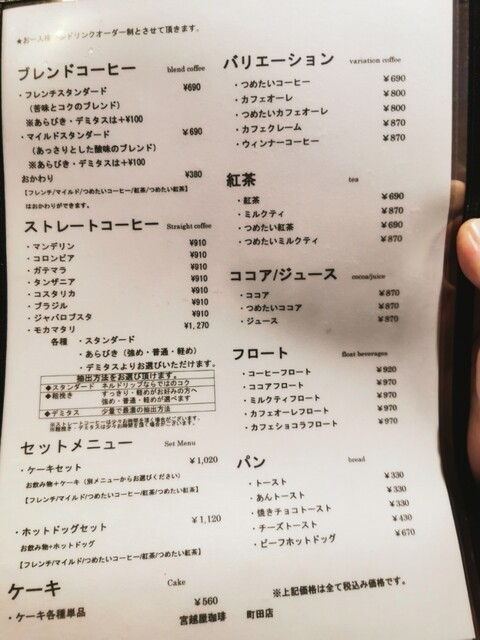 ★お一人様ワンドリンクオーダー制とさせて頂きます。
ブレンドコーヒー blend coffee
・フレンチスタンダード ¥690
(苦味とコクのブレンド)
※あらびき・デミタスは+¥100
・マイルドスタンダード ¥690
(あっさりとした酸味のブレンド)
※あらびき・デミタスは+¥100
おかわり ¥380
【フレンチ/マイルド/つめたいコーヒー/紅茶/つめたい紅茶】
はおかわりができます。
ストレートコーヒー Straight coffee
・マンデリン ¥910
・コロンビア ¥910
・ガテマラ ¥910
・タンザニア ¥910
・コスタリカ ¥910
・ブラジル ¥910
・ジャバロブスタ ¥910
・モカマタリ ¥1,270
各種 ・スタンダード
・あらびき(強め・普通・軽め)
・デミタスよりお選びいただけます。
抽出方法をお選び頂けます。
◆スタンダード ネルドリップならではのコク
◆粗挽き すっきり・軽めがお好みの方へ
強め・普通・軽めが選べます
◆デミタス 少量で最濃の抽出方法
セットメニュー Set Menu
・ケーキセット ¥1,020
お飲み物+ケーキ(別メニューからお選びください)
【フレンチ/マイルド/つめたいコーヒー/紅茶/つめたい紅茶】
・ホットドッグセット ¥1,120
お飲み物+ホットドッグ
【フレンチ/マイルド/つめたいコーヒー/紅茶/つめたい紅茶】
ケーキ Cake
・ケーキ各種単品 ¥560
バリエーション variation coffee
・つめたいコーヒー ¥690
・カフェオーレ ¥800
・つめたいカフェオーレ ¥800
・カフェクレーム ¥870
・ウィンナーコーヒー ¥870
紅茶 tea
・紅茶 ¥690
・ミルクティ ¥870
・つめたい紅茶 ¥690
・つめたいミルクティ ¥870
ココア/ジュース cocoa/juice
・ココア ¥870
・つめたいココア ¥870
・ジュース ¥870
フロート float beverages
・コーヒーフロート ¥920
・ココアフロート ¥970
・ミルクティフロート ¥970
・カフェオーレフロート ¥970
・カフェショコラフロート ¥970
パン bread
・トースト ¥330
・あんトースト ¥330
・焼きチョコトースト ¥330
・チーズトースト ¥430
・ビーフホットドッグ ¥670
※上記価格は全て税込み価格です。
宮越屋珈琲 町田店